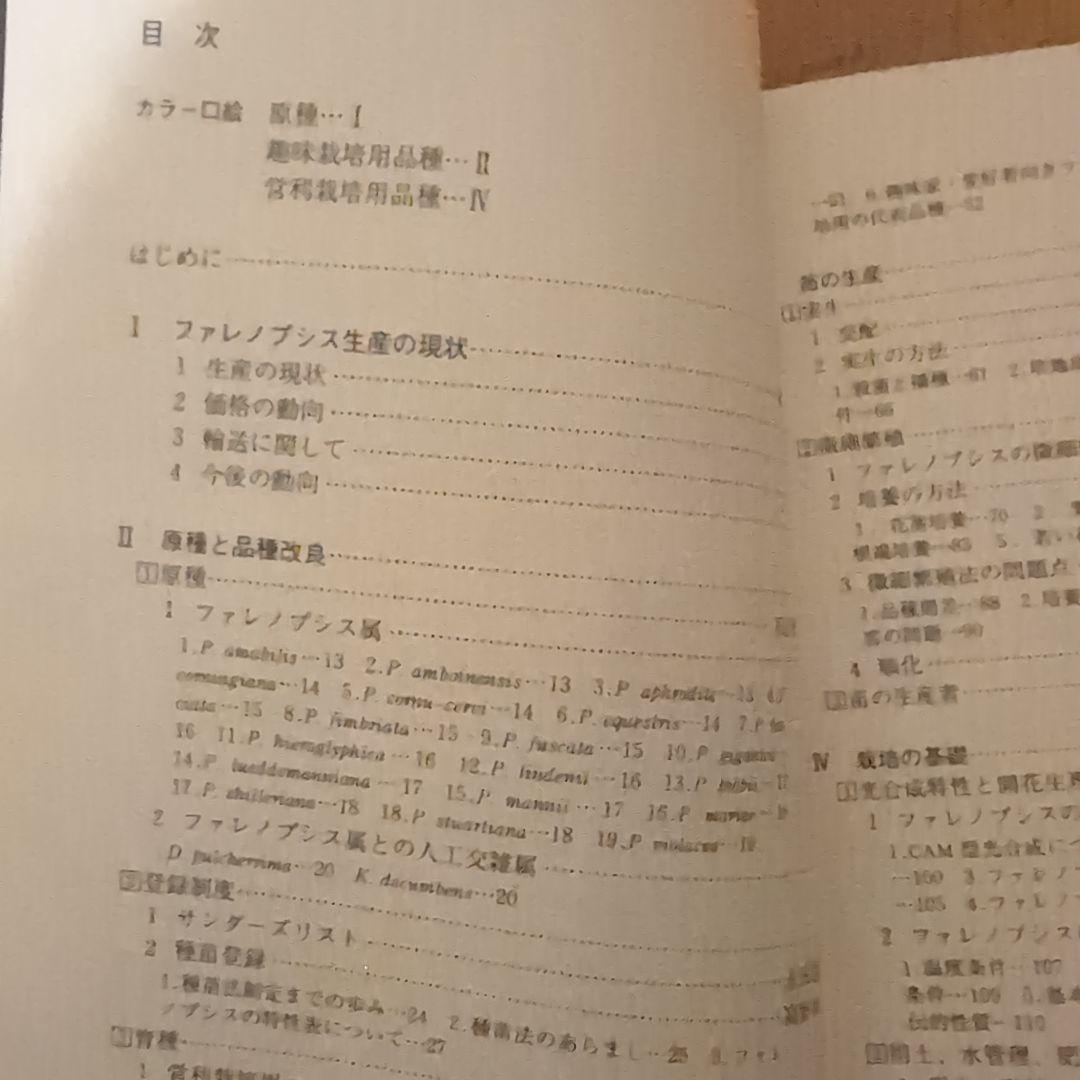 目 次
カラー口絵 原種… I
趣味栽培用品種… II
営利栽培用品種… IV
はじめに
I ファレノプシス生産の現状
1 生産の現状
2 価格の動向
3 輸送に関して
4 今後の動向
II 原種と品種改良
1 原種
1 ファレノプシス属
1.P amabilis…13 2.P. amboinensis…13 3.P aphrodite…13
corningiana…14 5.P. cornu-cervi…14 6.P. equestris…14 7.P
…15 8.P. fimbriata…15 9.P. fuscata…15 10.P
16 11.P. hieroglyphica…16 12.P. lindenii…16 13.P
14.P. lueddemanniana…17 15.P mannii…17 16.P
17.P. schilleriana…18 18.P stuartiana…18 19.P violacea
2 ファレノプシス属との人工交雑属
D pulcherrima…20 K. decumbens…20
2 登録制度
1 サンダーズリスト
2 種苗登録
1.種苗法制定までの歩み…24 2.種苗法のあらまし…25
ノプシスの特性表について…27
3 育種
1 営利栽培用
6 趣味家・愛好者向き
地南の代表品種
苗の生産
1 実生
1 交配
2 実生の方法
件…66
2 微細繁殖
1 ファレノプシスの微細
2 培養の方法
1. 花茎培養…70 2
根端培養 5. 若い
3 微細繁殖法の問題点
1.品種間差…88 2.培養
苗の問題…90
4 順化
3 苗の生産者
IV 栽培の基礎
1 光合成特性と開花生
1 ファレノプシスの
1.CAM型光合成に
…100 3.ファレノ
…105 4.ファレノ
2 ファレノプシス
1 温度条件…107
条件…109 3.基本
伝的性質…110
2 用土、水管理、肥